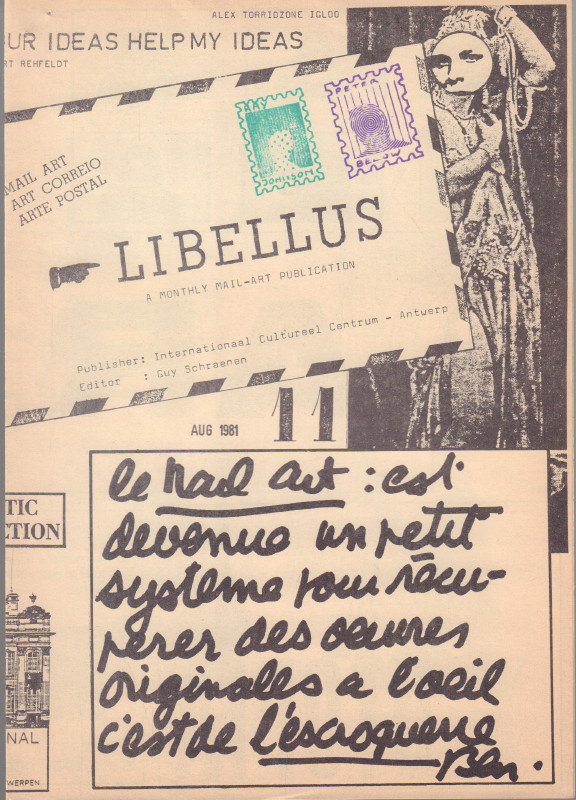 ALEX TORRIDZONE IGLOO
UR IDEAS HELP MY IDEAS
RT REHFELDT
MAIL ART
ART CORREIO
ARTE POSTAL
RAY
JOHNSON
PETER
BELOW
LIBELLUS
A MONTHLY MAIL-ART PUBLICATION
Publisher: Internationaal Cultureel Centrum - Antwerp
Editor : Guy Schraenen
AUG 1981
11
TIC
CTION
NAL
WERPEN
le Mail art : est
devenue un petit
système pour récu-
perer des oeuvres
originales a l'oeil
c'est de l'escroquerie
Ben.